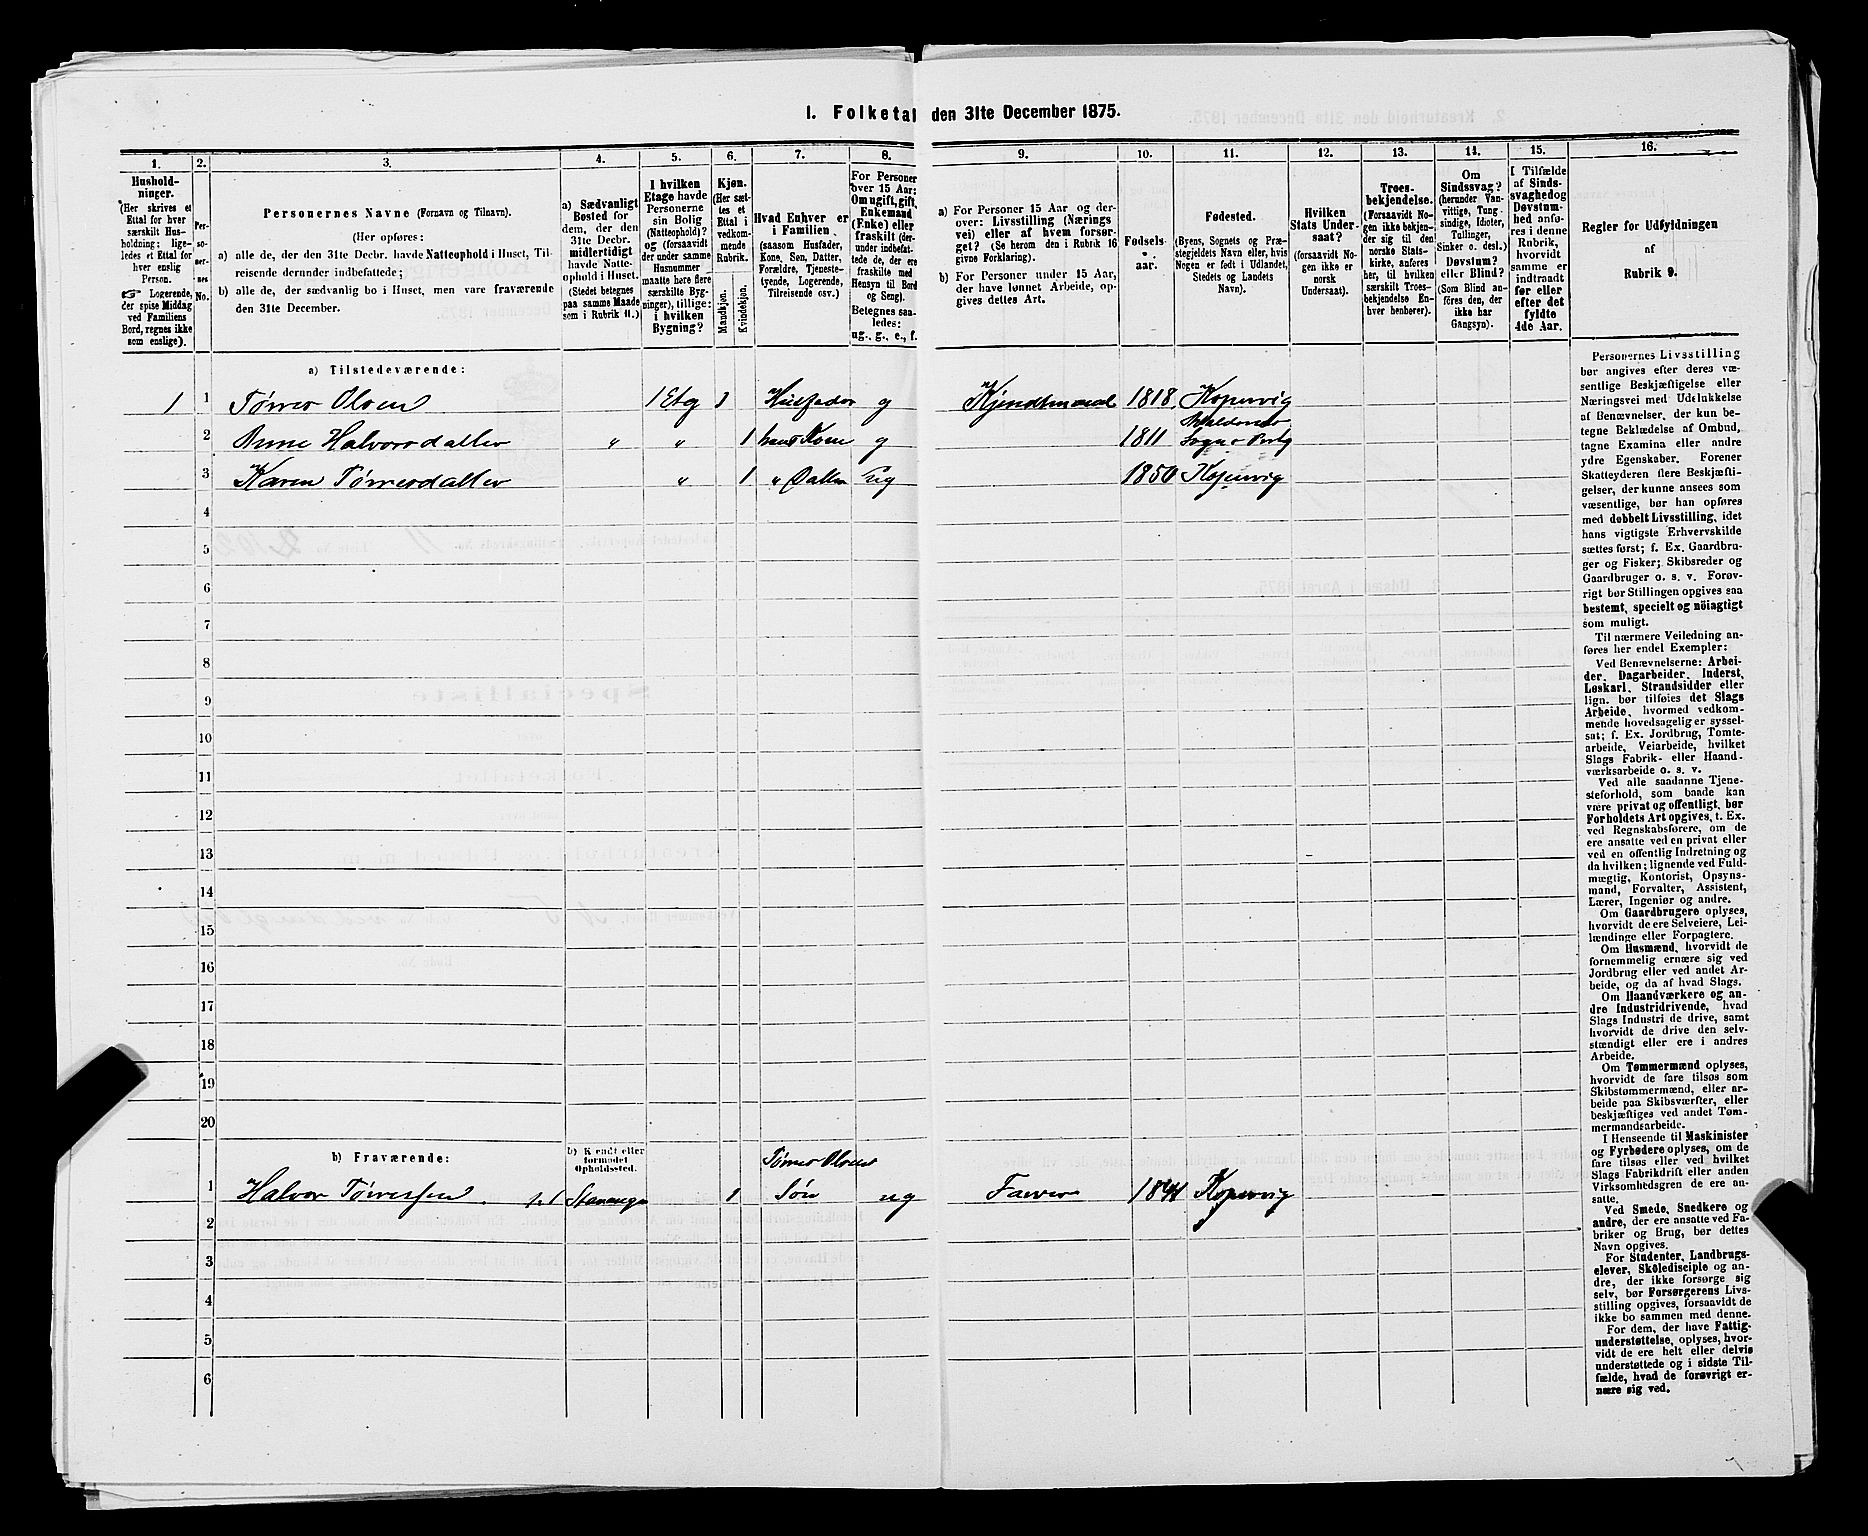 1. Folketal den 31te December 1875.
1.
Hushold-
ninger.
(Her skrives et
Ettal for hver
særskilt Hus-
holdning; lige-
ledes et Ettal for
hver enslig
Person.
Logerende,
der spise Middag
ved Familiens
Bord, regnes ikke
som enslige).
2.
Per-
so-
ner-
nes
No.
3.
Personernes Navne (Fornavn og Tilnavn).
(Her opføres:
a) alle de, der den 31te Decbr. havde Natteophold i Huset, Til-
reisende derunder indbefattede;
b) alle de, der sædvanlig bo i Huset, men vare fraværende
den 31te December.
4.
a) Sædvanligt
Bosted for
dem, der den
31te Decbr.
midlertidigt
havde Natte-
ophold i Huset.
(Stedet betegnes
paa samme Maade
som i Rubrik 11.)
5.
I hvilken
Etage havde
Personerne
sin Bolig
(Natteophold)?
og (forsaavidt
der under samme
Husnummer
maatte høre flere
særskilte Byg-
ninger), tillige:
i hvilken
Bygning?
6.
Kjøn.
(Her sæt-
tes et
Ettal i
vedkom-
mende
Rubrik.
Mandkjøn.
Kvindekjøn.
7.
Hvad Enhver er
i Familien
(saasom Husfader,
Kone, Søn, Datter,
Forældre, Tjeneste-
tyende, Logerende,
Tilreisende osv.)
8.
For Personer
over 15 Aar:
Om ugift, gift,
Enkemand
(Enke) eller
fraskilt (der-
under indbefat-
tede de, der ere
fraskilte med
Hensyn til Bord
og Seng).
Betegnes saa-
ledes:
ug., g., e., f.
9.
a) For Personer 15 Aar og der-
over: Livsstilling (Nærings
vei) eller af hvem forsør-
get? (Se herom den i Rubrik 16
givne Forklaring).
b) For Personer under 15 Aar,
der have lønnet Arbeide, op-
gives dettes Art.
10.
Fødsels-
aar.
11.
Fødested.
(Byens, Sognets og Præ-
stegjeldets Navn eller, hvis
Nogen er født i Udlandet,
Stedets og Landets
Navn).
12.
Hvilken
Stats Under-
saat?
(forsaavidt No-
gen ikke er
norsk
Undersaat).
13.
Troes-
bekjendelse.
(Forsaavidt No-
gen ikke bekjen-
der sig til den
norske Stats-
kirke, anføres
her, til hvilken
særskilt Troes-
bekjendelse En-
hver henhører).
14.
Om
Sindssvag?
(herunder Van-
vittige, Tung-
sindige, Idioter,
Tullinger,
Sinker o. desl.)
Døvstum?
eller Blind?
(Som Blind an-
føres den, der
ikke har
Gangsyn).
15.
I Tilfælde
af Sinds-
svaghed og
Døvstum-
hed anfø-
res i denne
Rubrik,
hvorvidt
samme er
indtraadt
før eller
efter det
fyldte
4de Aar.
16.
Regler for Udfyldningen
af
Rubrik 9.
a) Tilstedeværende:
1 1 Tørres Olsen 1 Etg 1 Husfader g Kjendtmand 1818 Kopervig
2 Anne Halvorsdatter " " 1 hans Kone g 1811 Sogn
3 Karen Tørresdatter " 1 " Datter ug 1850 Kopervig
4
5
6
7
8
9
10
11
12
13
14
15
16
17
18
19
20
b) Fraværende:
b) Kendt eller
formodet
Opholdssted.
Tørres Olsens
1 Halvor Tørressen 1.1 Stavanger 1 Søn ug Farver 1841 Kopervig
2
3
4
5
6
Personernes Livsstilling
bør angives efter deres væ-
sentlige Beskjæftigelse eller
Næringsvei med Udelukkelse
af Benævnelser, der kun be-
tegne Beklædelse af Ombud,
tagne Examina eller andre
ydre Egenskaber. Forener
Skatteyderen flere Beskjæfti-
gelser, der kunne ansees som
væsentlige, bør han opføres
med dobbelt Livsstilling, idet
hans vigtigste Erhvervskilde
sættes først; f. Ex. Gaardbru-
ger og Fisker; Skibsreder og
Gaardbruger o. s. v. Forøv-
rigt bør Stillingen opgives saa
bestemt, specielt og nöiagtigt
som muligt.
Til nærmere Veiledning an-
føres her endel Exempler:
Ved Benævnelserne: Arbei-
der, Dagarbeider, Inderst,
Løskarl, Strandsidder eller
lign. bør tilføies det Slags
Arbeide, hvormed vedkom-
mende hovedsagelig er syssel-
sat; f. Ex. Jordbrug, Tomte-
arbeide, Veiarbeide, hvilket
Slags Fabrik- eller Haand-
værksarbeide o. s. v.
Ved alle saadanne Tjene-
steforhold, som baade kan
være privat og offentligt, bør
Forholdets Art opgives, t. Ex.
ved Regnskabsførere, om de
ere ansatte ved en privat eller
ved en offentlig Indretning og
da hvilken; lignende ved Fuld-
mægtig, Kontorist, Opsyns-
mand, Forvalter, Assistent,
Lærer, Ingeniør og andre.
Om Gaardbrugere oplyses,
hvorvidt de ere Selveiere, Lei-
lændinge eller Forpagtere.
Om Husmænd, hvorvidt de
fornemmelig ernære sig ved
Jordbrug eller ved andet Ar-
beide, og da af hvad Slags.
Om Haandværkere og an-
dre Industridrivende, hvad
Slags Industri de drive, samt
hvorvidt de drive den selv-
stændigt eller ere i andres
Arbeide.
Om Tømmermænd oplyses,
hvorvidt de fare tilsøs som
Skibstømmermænd, eller ar-
beide paa Skibsværfter, eller
beskjæftiges ved andet Tøm-
mermandsarbeide.
I Henseende til Maskinister
og Fyrbødere oplyses, om de
fare tilsøs eller ved hvilket
Slags Fabrikdrift eller anden
Virksomhedsgren de ere an-
satte.
Ved Smede, Snedkere og
andre, der ere ansatte ved Fa-
briker og Brug, bør dettes
Navn opgives.
For Studenter, Landbrugs-
elever, Skoledisciple og an-
dre, der ikke forsørge sig
selv, bør Forsørgerens Livs-
stilling opgives, forsaavidt de
ikke bo sammen med denne.
For dem, der have Fattig-
understøttelse, oplyses, hvor-
vidt de ere helt eller delvis
understøttede og i sidste Til-
fælde, hvad de forøvrigt er-
nære sig ved.